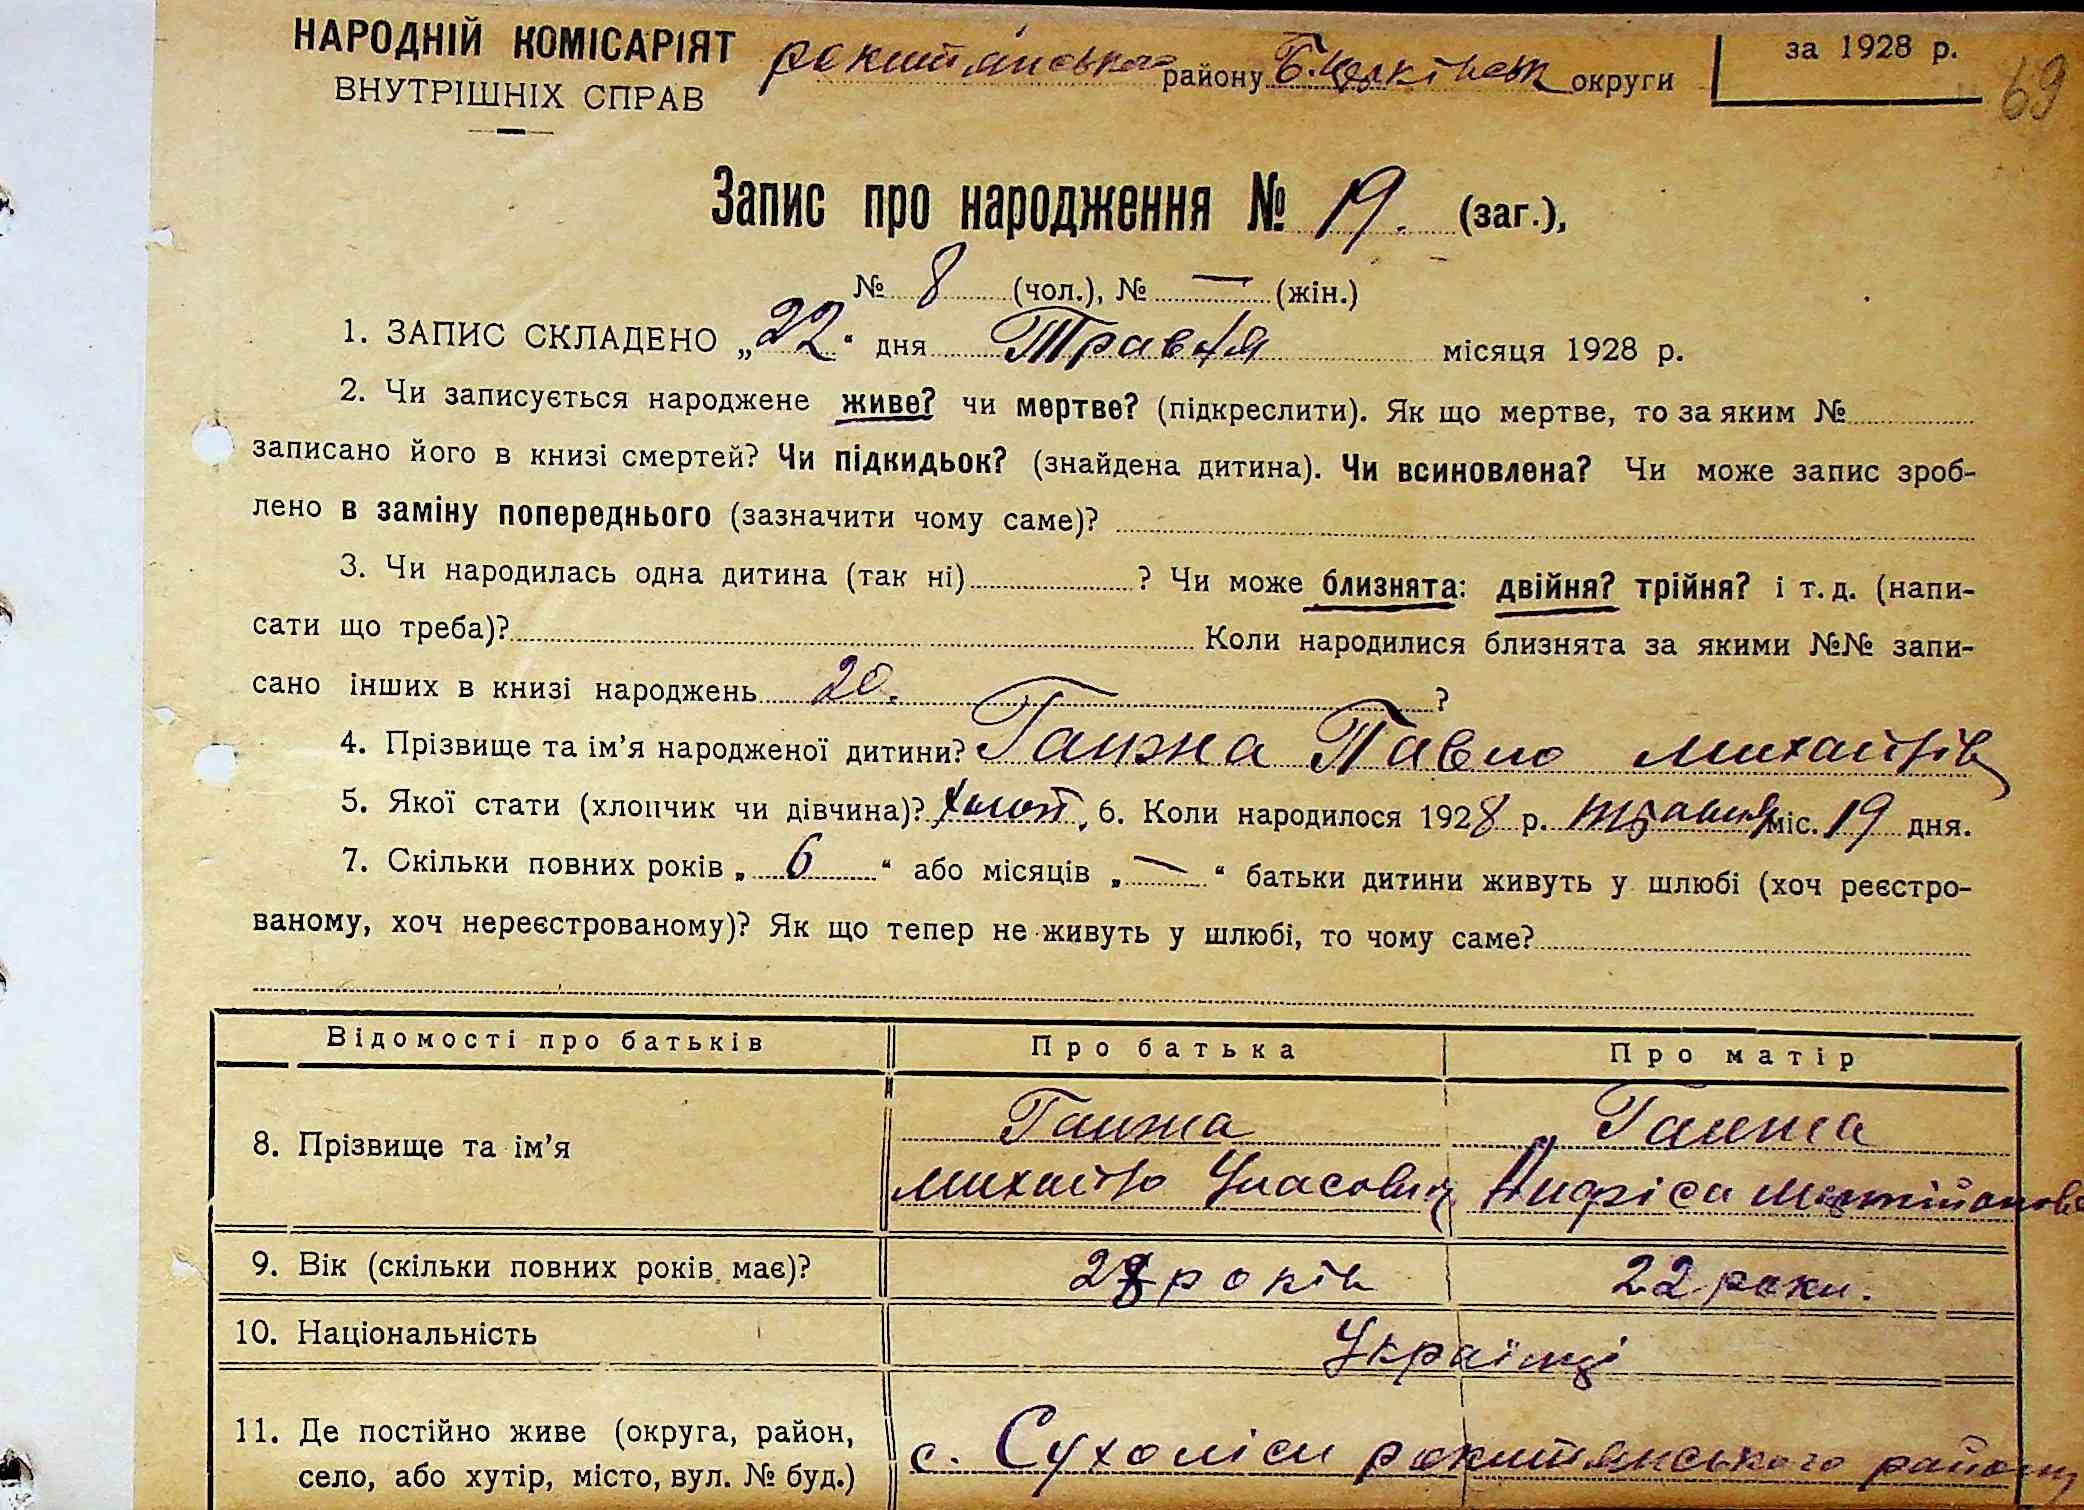 НАРОДНІЙ КОМІСАРІЯТ
ВНУТРІШНІХ СПРАВ
рокитянського району Б. Церківськ округи
за 1928 р.
69
Запис про народження № 19. (заг.),
№ 8 (чол.), № — (жін.)
1. ЗАПИС СКЛАДЕНО „22“ дня Травня місяця 1928 р.
2. Чи записується народжене живе? чи мертве? (підкреслити). Як що мертве, то за яким №
записано його в книзі смертей? Чи підкидьок? (знайдена дитина). Чи всиновлена? Чи може запис зроб-
лено в заміну попереднього (зазначити чому саме)?
3. Чи народилась одна дитина (так ні) ? Чи може близнята: двійня? трійня? і т. д. (напи-
сати що треба)? Коли народилися близнята за якими №№ запи-
сано інших в книзі народжень 20. ?
4. Прізвище та ім’я народженої дитини? Ганжа Павло Михайлів
5. Якої стати (хлопчик чи дівчина)? хлоп. 6. Коли народилося 1928 р. травня міс. 19 дня.
7. Скільки повних років „ 6 “ або місяців „ — “ батьки дитини живуть у шлюбі (хоч реєстро-
ваному, хоч нереєстрованому)? Як що тепер не живуть у шлюбі, то чому саме?
Відомості про батьків Про батька Про матір
8. Прізвище та ім’я Ганжа Ганжа
Михайло Уласович
9. Вік (скільки повних років має)? 28 років 22 роки.
10. Національність Українці
11. Де постійно живе (округа, район,
село, або хутір, місто, вул. № буд.)
с. Сухоліси рокитянського району